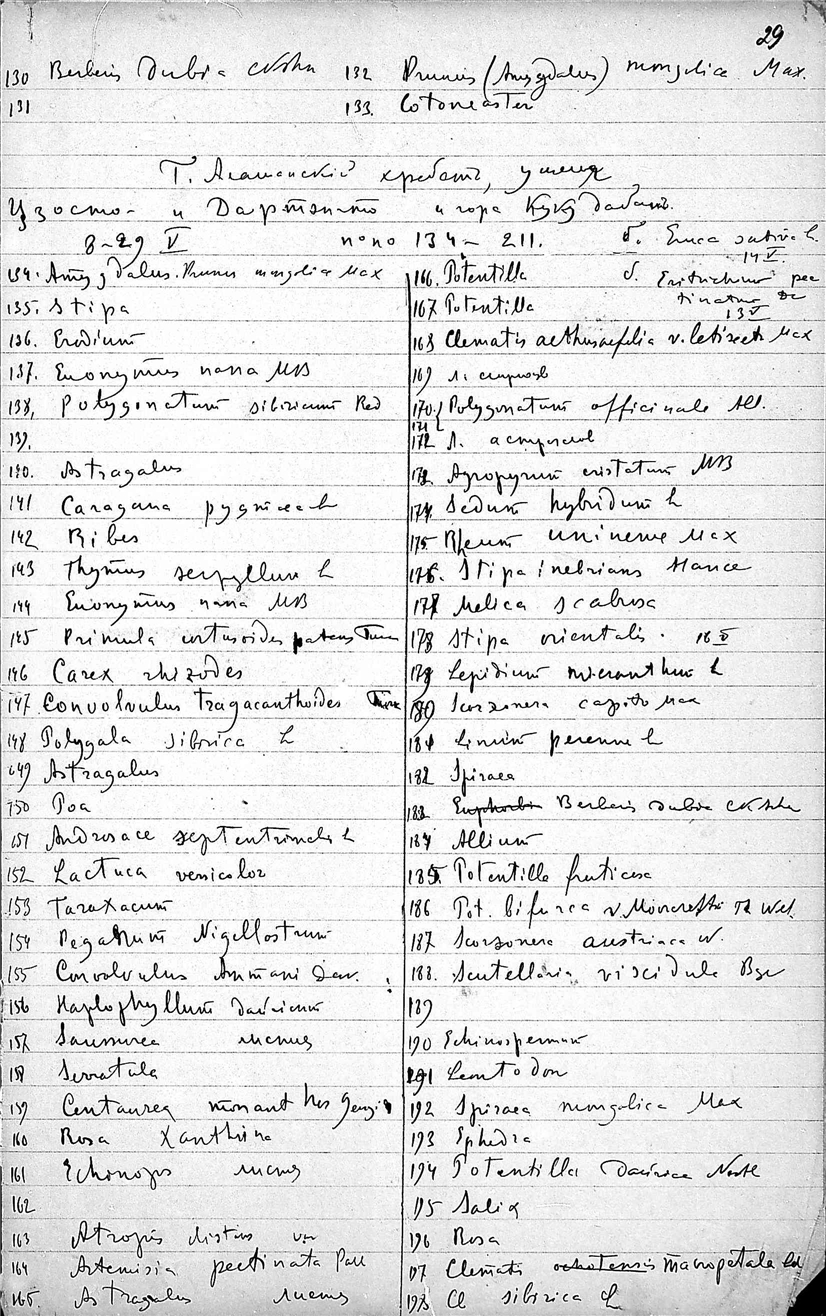 29
130 Berberis dubia 132 Prunus (Amygdalus) mongolica Max.
131 133. Cotoneaster
Т. Алашанскій хребетъ, ущелья
и гора
8-29 V 134- 211. б. Eruca sativa L.
14 V.
134. Amygdalus. Prunus mongolica Max
135. Stipa
136. Erodium
137. Euonymus nana MB
138, Polygonatum sibiricum Red
139.
140. Astragalus
141 Caragana pygmaea L
142 Ribes
143 Thymus serpyllum L
144 Euonymus nana MB
145 Primula cortusoides patens Turcz
146 Carex rhizodes
147 Convolvulus tragacanthoides Turcz
148 Polygala sibirica L
149 Astragalus
150 Poa
151 Androsace septentrionalis L
152 Lactuca versicolor
153 Taraxacum
154 Peganum Nigellastrum
155 Convolvulus Ammani Desr.
156 Haplophyllum dauricum
157 Saussurea листья
158 Serratula
159 Centaurea monanthos Georgi
160 Rosa Xanthina
161 Echinops листья
162
163 Atropis distans var
164 Artemisia pectinata Pall
165 Astragalus листья
166. Potentilla б. Eritrichium pec
167 Potentilla tinatum DC
13 V
168 Clematis aethusaefolia v. latisecta Max
169
170. Polygonatum officinale All.
171
172
173 Agropyrum cristatum MB
174. Sedum hybridum L
175 Rheum uninerve Max
176. Stipa inebrians Hance
177 Melica scabrosa
178 Stipa orientalis. 16 V
179 Lepidium micranthum L
180 Scorzonera capito Max
181 Linum perenne L
182 Spiraea
183 Euphorbi Berberis dubia
184 Allium
185. Potentilla fruticosa
186 Pot. bifurca v. Moorcroftii
187 Scorzonera austriaca W.
188. Scutellaria viscidula Bge
189
190 Echinospermum
191 Leontodon
192 Spiraea mongolica Max
193 Ephedra
194 Potentilla daurica Nestl
195 Salix
196 Rosa
197 Clematis ochotensis macropetala Ld
198 Cl sibirica L